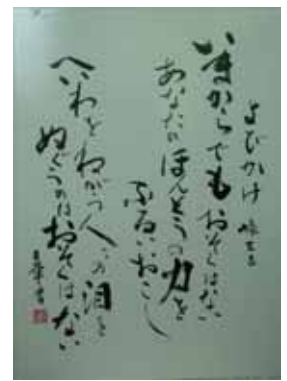 よびかけ 峠三吉
いまからでもおそくはない
あなたのほんとうの力を
ふるいおこし
へいわをねがう人の泪を
ぬぐうのはおそくはない